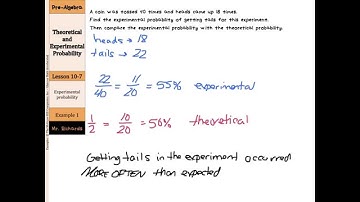 Pre-Algebra
Theoretical
and
Experimental
Probability
Lesson 10-7
Experimental
probability
Example 1
Mr. Richards
A coin was tossed 40 times and heads came up 18 times.
Find the experimental probability of getting tails for this experiment.
Then compare the experimental probability with the theoretical probability.
heads → 18
tails → 22
22/40 = 11/20 = 55% experimental
1/2 = 10/20 = 50% theoretical
Getting tails in the experiment occurred
MORE OFTEN than expected